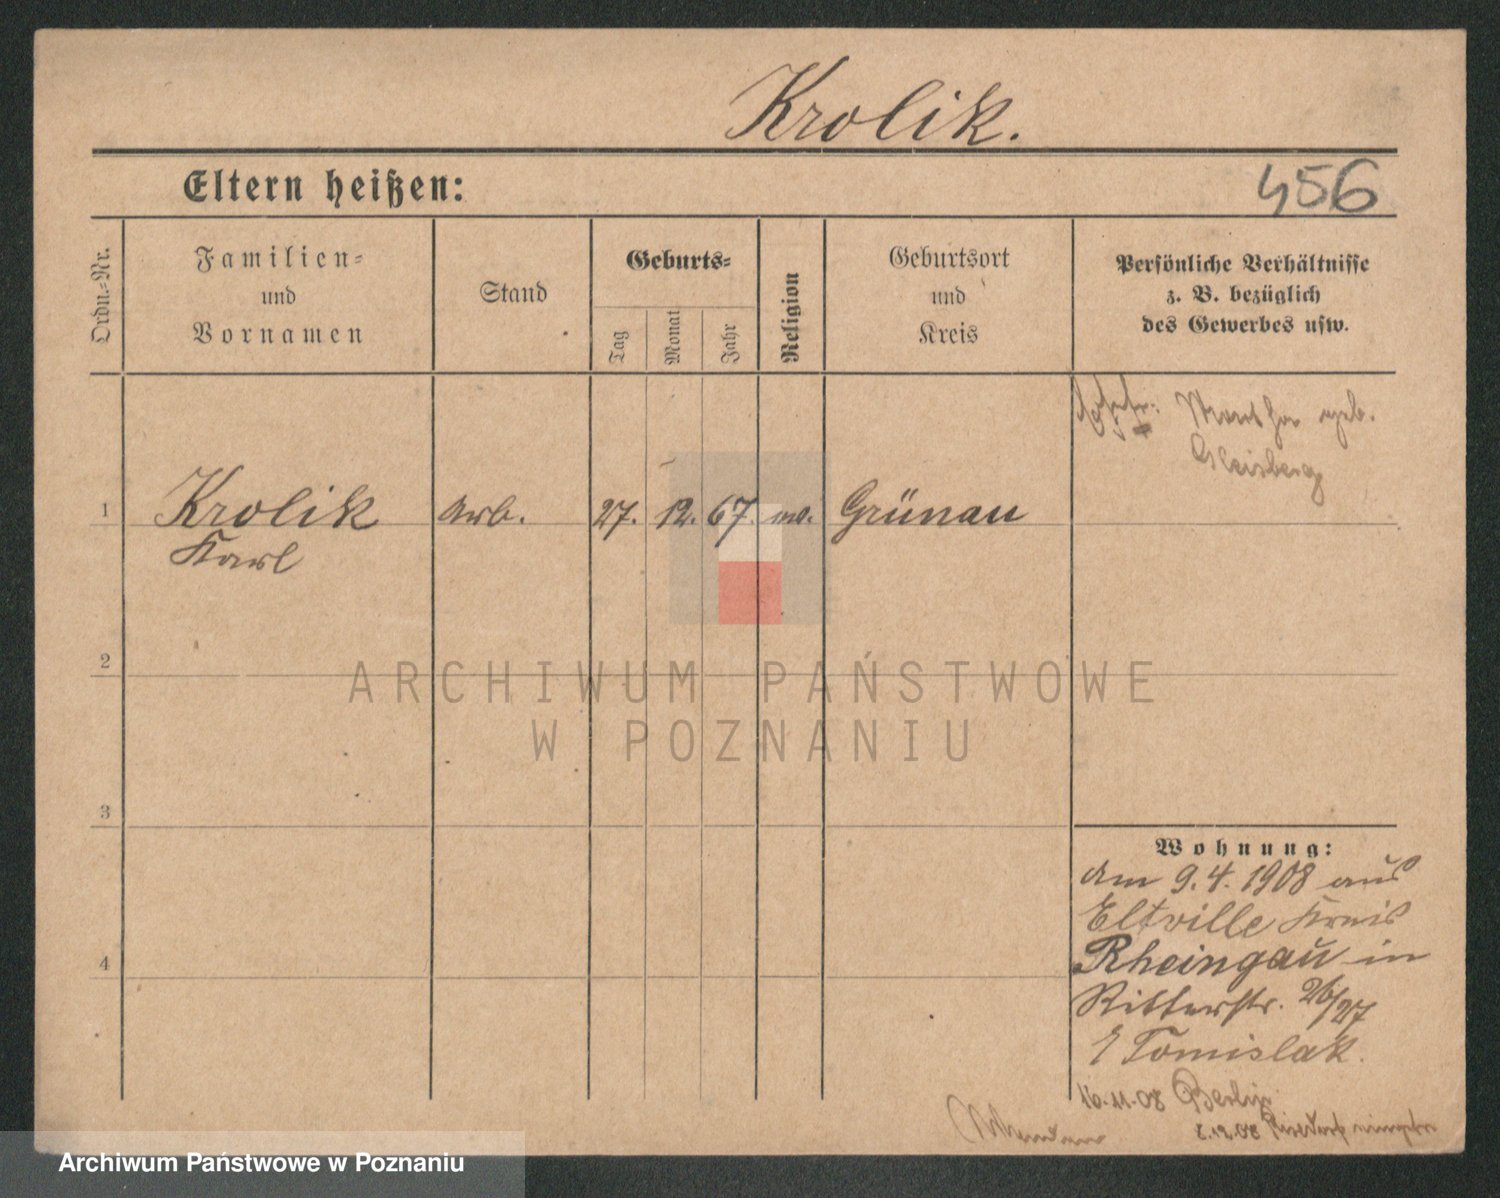 Krolik.
Eltern heißen:
456
Ordn.-Nr.
Familien-
und
Vornamen
Stand
Geburts-
Tag
Monat
Jahr
Religion
Geburtsort
und
Kreis
Persönliche Verhältnisse
z. B. bezüglich
des Gewerbes usw.
Martha geb.
Gleisberg
1
Krolik
Karl
Arb.
27.
12.
67.
Grünau
2
3
4
Wohnung:
am 9.4.1908 aus
Eltville Kreis
Rheingau in
Ritterstr. 26/27
Tomislak.
16.11.08 Berlin
8.12.08
ARCHIWUM PAŃSTWOWE
W POZNANIU
Archiwum Państwowe w Poznaniu